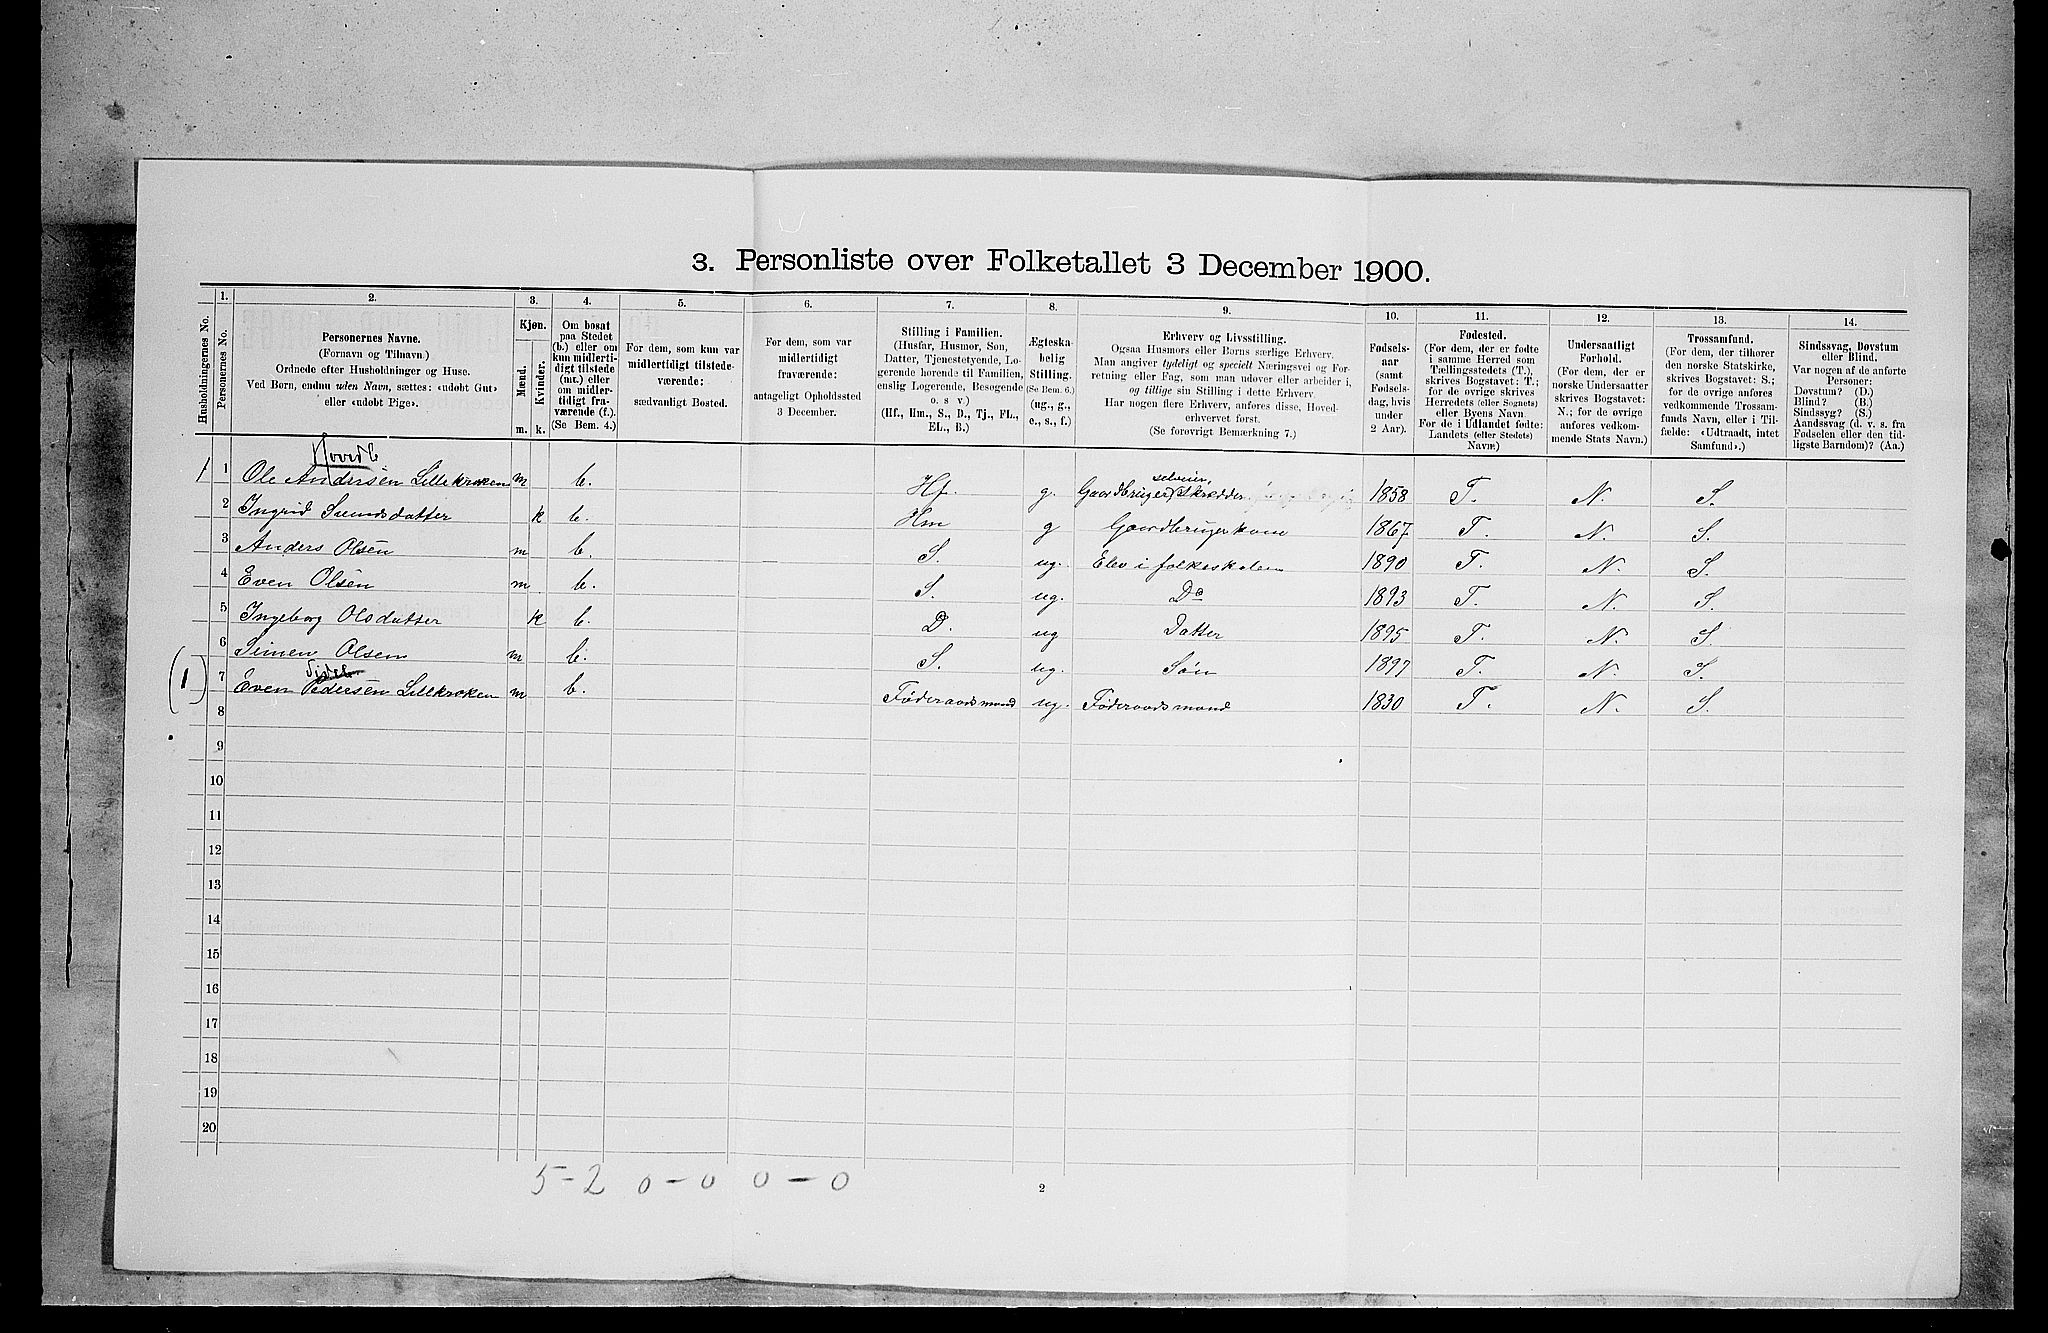 3. Personliste over Folketallet 3 December 1900.
1. 2. 3. 4. 5. 6. 7. 8. 9. 10. 11. 12. 13. 14.
Husholdningernes No.
Personernes No.
Personernes Navne.
(Fornavn og Tilnavn.)
Ordnede efter Husholdninger og Huse.
Ved Børn, endnu uden Navn, sættes: «udøbt Gut»
eller «udøbt Pige».
Kjøn.
Mænd.
Kvinder.
m. k.
Om bosat
paa Stedet
(b.) eller om
kun midlerti-
digt tilstede
(mt.) eller
om midler-
tidigt fra-
værende (f.).
(Se Bem. 4.)
For dem, som kun var
midlertidigt tilstede-
værende:
sædvanligt Bosted.
For dem, som var
midlertidigt
fraværende:
antageligt Opholdssted
3 December.
Stilling i Familien.
(Husfar, Husmor, Søn,
Datter, Tjenestetyende, Lo-
gerende hørende til Familien,
enslig Logerende, Besøgende
o. s v.)
(Hf., Hm., S., D., Tj., FL.,
EL., B.)
Ægteska-
belig
Stilling.
(Se Bem. 6.)
(ug., g.,
e., s., f.)
Erhverv og Livsstilling.
Ogsaa Husmors eller Børns særlige Erhverv.
Man angiver tydeligt og specielt Næringsvei og For-
retning eller Fag, som man udøver eller arbeider i,
og tillige sin Stilling i dette Erhverv.
Har nogen flere Erhverv, anføres disse, Hoved-
erhvervet først.
(Se forøvrigt Bemærkning 7.)
Fødsels-
aar
(samt
Fødsels-
dag, hvis
under
2 Aar).
Fødested.
(For dem, der er fødte
i samme Herred som
Tællingsstedets (T.),
skrives Bogstavet: T.;
for de øvrige skrives
Herredets (eller Sognets)
eller Byens Navn.
For de i Udlandet fødte:
Landets (eller Stedets)
Navn.)
Undersaatligt
Forhold.
(For dem, der er
norske Undersaatter
skrives Bogstavet:
N.; for de øvrige
anføres vedkom-
mende Stats Navn.)
Trossamfund.
(For dem, der tilhører
den norske Statskirke,
skrives Bogstavet: S.;
for de øvrige anføres
vedkommende Trossam-
funds Navn, eller i Til-
fælde: «Udtraadt, intet
Samfund».)
Sindssvag, Døvstum
eller Blind.
Var nogen af de anførte
Personer:
Døvstum? (D.)
Blind? (B.)
Sindssyg? (S.)
Aandssvag (d. v. s. fra
Fødselen eller den tid-
ligste Barndom)? (Aa.)
Hovedb
selveier,
1 1 Ole Andersen Lillekroken m b. Hf. g. Gaardbruger Skrædder 1858 T. N. S.
2 Ingrid Svendsdatter k b. Hm g Gaardbrugerkone 1867 T. N. S.
3 Anders Olsen m b. S. ug. Elev i folkeskolen 1890 T. N. S.
4 Even Olsen m. b. S. ug. Do 1893 T. N. S.
5 Ingeborg Olsdatter k b. D. ug Datter 1895 T. N. S.
6 Simen Olsen m b. S. ug. Søn 1897 T. N. S.
Sideb
(1) 7 Even Pedersen Lillekroken m b. Føderaadsmand ug. Føderaadsmand 1830 T. N. S.
8
9
10
11
12
13
14
15
16
17
18
19
20
5-2 0-0 0-0
2